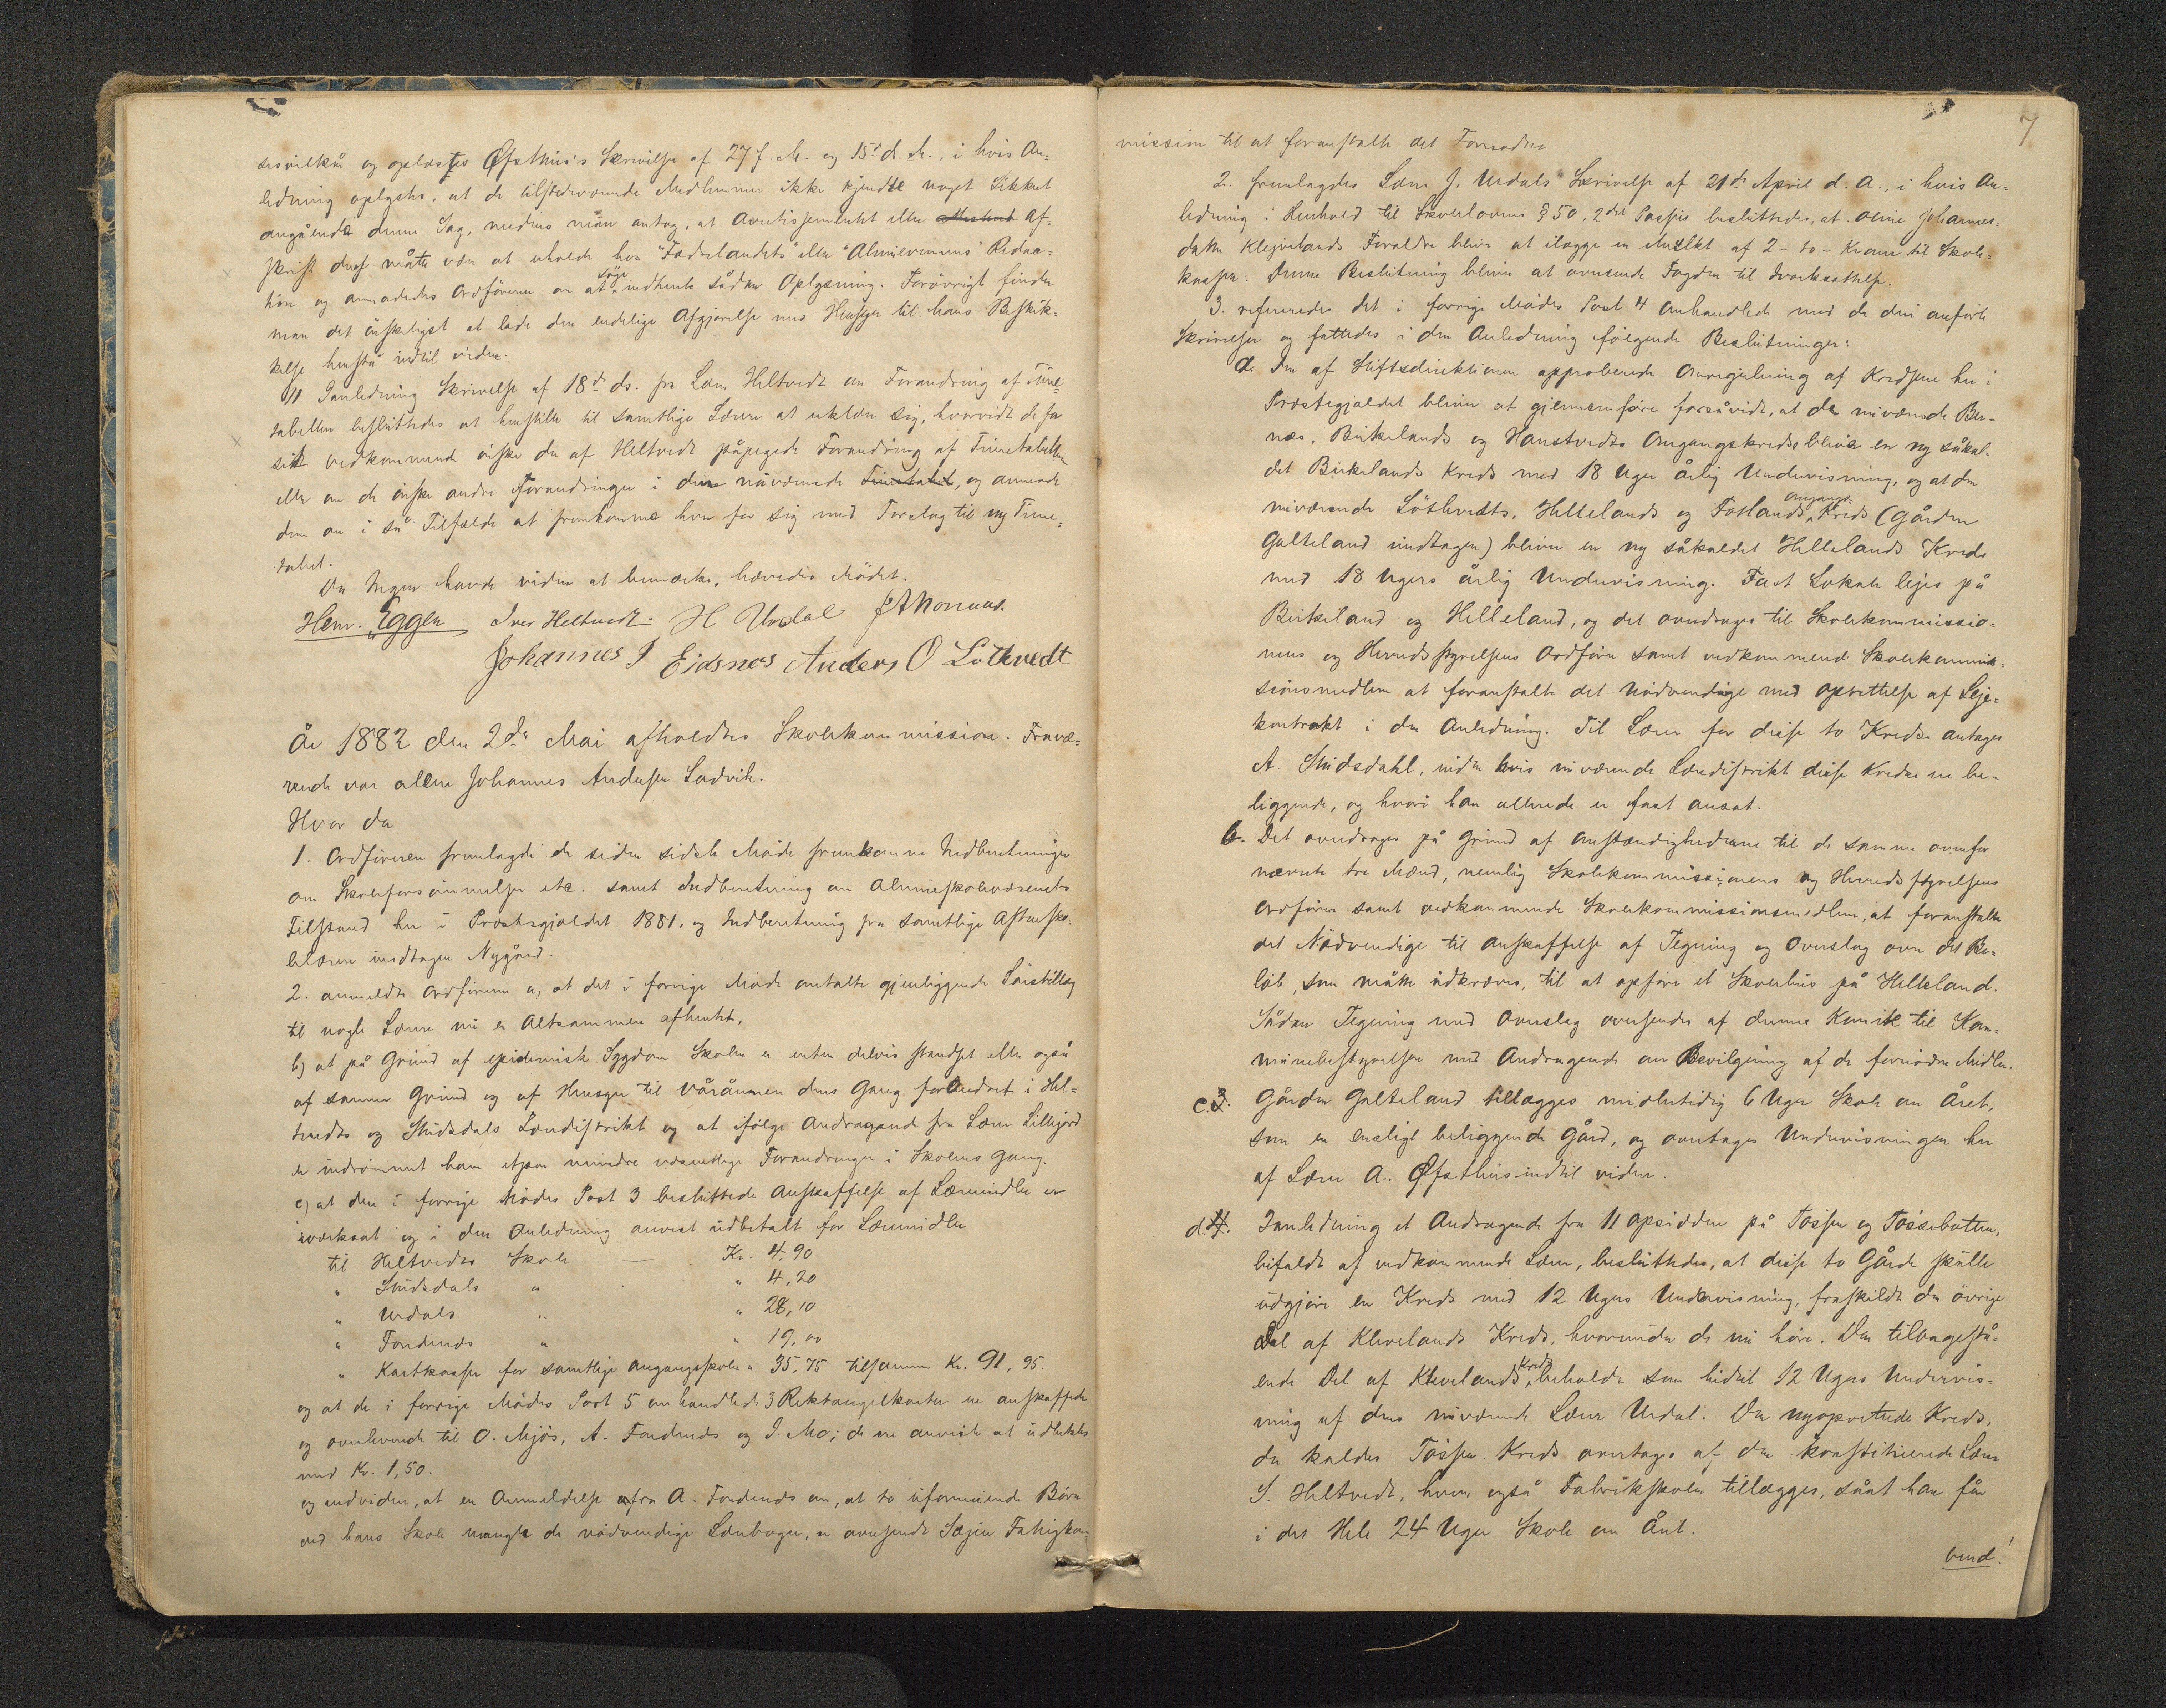 sesvilkår og oplæstes Øfsthus's Skrivelse af 27 f. M. og 15de d. M., i hvis An-
ledning oplystes, at de tilstedeværende Medlemmer ikke kjendte noget Sikkert
angående denne Sag, medens man antog, at Avertissementet eller Af-
skrift deraf måtte være at erholde hos "Fædrelandets" eller "Almuevennens" Redac-
tion og anmodedes Ordføreren om at søge indhente sådan Oplysning. Forøvrigt finder
man det ønskeligst at lade den endelige Afgjørelse med Hensyn til hans Beskik-
kelse henstå indtil videre.
11 I anledning Skrivelse af 18de ds. fra Lærer Heltvedt om Forandring af Time-
tabellen besluttedes at henstille til samtlige Lærere at erklære sig, hvorvidt de for
sit vedkommende ønske den af Heltvedt påpegede Forandring af Timetabellen
eller om de ønske andre Forandringer i den nuværende Timetabel, og anmode
dem om i så Tilfælde at fremkomme hver for sig med Forslag til ny Time-
tabel.
Da Ingen havde videre at bemærke, hævedes Mødet.
Henr. Eggen Iver Heltvedt. H Urdal J A Mornæs.
Johannes J Eidsnes Anders O Løtkvedt
År 1882 den 2den Mai afholdtes Skolekommission. Fravæ-
rende var alene Johannes Andersen Ladvik.
Hvor da
1. Ordføreren fremlagde de siden sidste Møde fremkomne Indberetninger
om Skoleforsømmelser etc. samt Indberetning om Almueskolevæsenets
Tilstand her i Præstegjældet 1881, og Indberetning fra samtlige Aftensko-
lelærere undtagen Nygård.
2. anmeldte Ordføreren a, at det i forrige Møde omtalte gjenliggende Lønstillæg
til nogle Lærere nu er Altsammen afhentet,
b) at på Grund af epidemisk Sygdom Skolen er enten delvis standset eller også
af samme Grund og af Hensyn til Våråonnen dens Gang forandret i Hel-
tvedts og Studsdals Lærerdistrikt og at ifølge Andragende fra Lærer Lillejord
er indrømmet ham etpar mindre væsentlige Forandringer i Skolens Gang.
c) at den i forrige Mødes Post 3 besluttede Anskaffelse af Læremidler er
iværksat og i den Anledning anvist udbetalt for Læremidler
til Heltvedts Skole — Kr. 4.90
" Studsdals " " 4,20
" Urdals " " 28,10
" Fondends " " 19,00
" Kartkasser for samtlige Omgangsskoler " 35.75 tilsammen Kr. 91,95.
og at de i forrige Mødes Post 5 omhandlede 3 Rektangelkarter er anskaffede
og overleverede til O. Mjøs, A. Fondends og J. Mo; de ere anviste at udbetales
med Kr. 1,50.
og endvidere, at en Anmeldelse fra A. Fondends om, at to uformuende Børn
ved hans Skole mangle de nødvendige Lærebøger, er oversendt Sæjm Fattigkom-
7
mission til at foranstalte det Fornødne
2. fremlagdes Lærer J. Urdals Skrivelse af 21de April d. A., i hvis An-
ledning i Henhold til Skolelovens § 50, 2det Passus besluttedes, at Oline Johannes-
datter Klejvelands Forældre bliver at ilægge en Mulkt af 2 - to - Kroner til Skole-
kassen. Denne Beslutning bliver at oversende Fogden til Iværksættelse.
3. refereredes det i forrige Mødes Post 4 Omhandlede med de deri anførte
Skrivelser og fattedes i den Anledning følgende Beslutninger:
a. Den af Stiftsdirektionen approberede Omregulering af Kredsene her i
Præstegjældet bliver at gjennemføre forsåvidt, at de nuværende Ber-
næs, Birkelands og Hanstvedts Omgangskredse blive en ny såkal-
det Birkelands Kreds med 18 Uger årlig Undervisning, og at den
nuværende Løtkvedts, Hellelands og Fotlands Omgangs-Kreds (Gården
Galteland undtagen) bliver en ny såkaldet Hellelands Kreds
med 18 Ugers årlig Undervisning. Fast Lokale lejes på
Birkeland og Helleland, og det overdrages til Skolekommissio-
nens og Herredsstyrelsens Ordfører samt vedkommende Skolekommis-
sionsmedlem at foranstalte det Nødvendige med Oprettelse af Leje-
kontrakt i den Anledning. Til Lærer for disse to Kredse antages
A. Studsdahl, inden hvis nuværende Lærerdistrikt disse Kredse ere be-
liggende, og hvori han allerede er fast ansat.
b. Det overdrages på Grund af Omstændighederne til de samme ovenfor
nævnte tre Mænd, nemlig Skolekommissionens og Herredsstyrelsens
Ordfører samt vedkommende Skolekommissionsmedlem, at foranstalte
det Nødvendige til Anskaffelse af Tegning og Overslag over det Be-
løb, som måtte udkræves, til at opføre et Skolehus på Helleland.
Sådan Tegning med Overslag oversendes af denne Komite til Kom-
munebestyrelsen med Andragende om Bevilgning af de fornødne Midler.
c. Gården Galteland tillægges midlertidig 6 Uger Skole om Året,
som en ensligt beliggende Gård, og overtages Undervisningen her
af Lærer A. Øfsthus indtil videre.
d. I anledning et Andragende fra 11 Opsiddere på Tøssen og Tøssebotten,
bifaldt af vedkommende Lærer, besluttedes, at disse to Gårde skulle
udgjøre en Kreds med 12 Ugers Undervisning, fraskildt den øvrige
Del af Klevelands Kreds, hvorunder de nu høre. Den tilbagestå-
ende Del af Klevelands Kreds beholder som hidtil 12 Ugers Undervis-
ning af dens nuværende Lærer Urdal. Den nyoprettede Kreds,
der kaldes Tøssen Kreds overtages af den konstituerede Lærer
S. Heltvedt, hvem også Fabrikskolen tillægges, sånt han får
i det Hele 24 Uger Skole om Året.
vend!